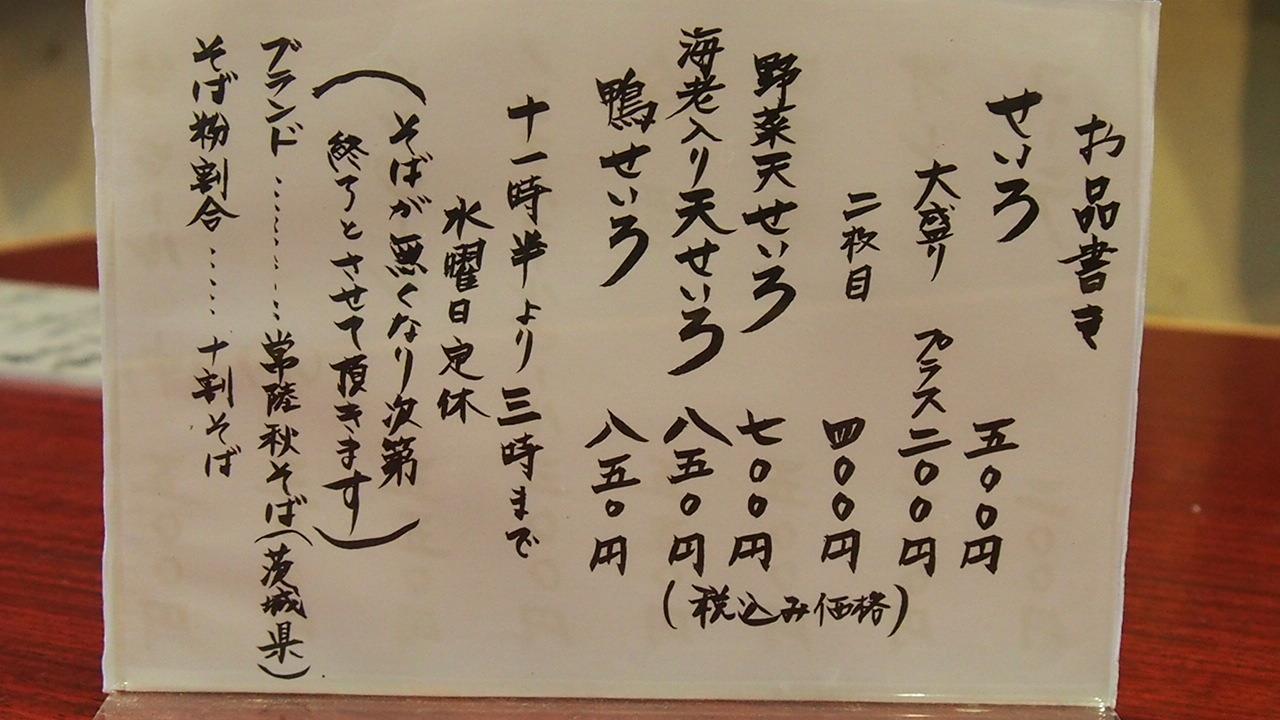 お品書き
せいろ 五〇〇円
大盛り プラス二〇〇円
二枚目 四〇〇円
野菜天せいろ 七〇〇円
海老入り天せいろ 八五〇円
鴨せいろ 八五〇円
(税込み価格)
十一時半より三時まで
水曜日定休
(そばが無くなり次第
終了とさせて頂きます)
ブランド……………常陸秋そば(茨城県)
そば粉割合……十割そば